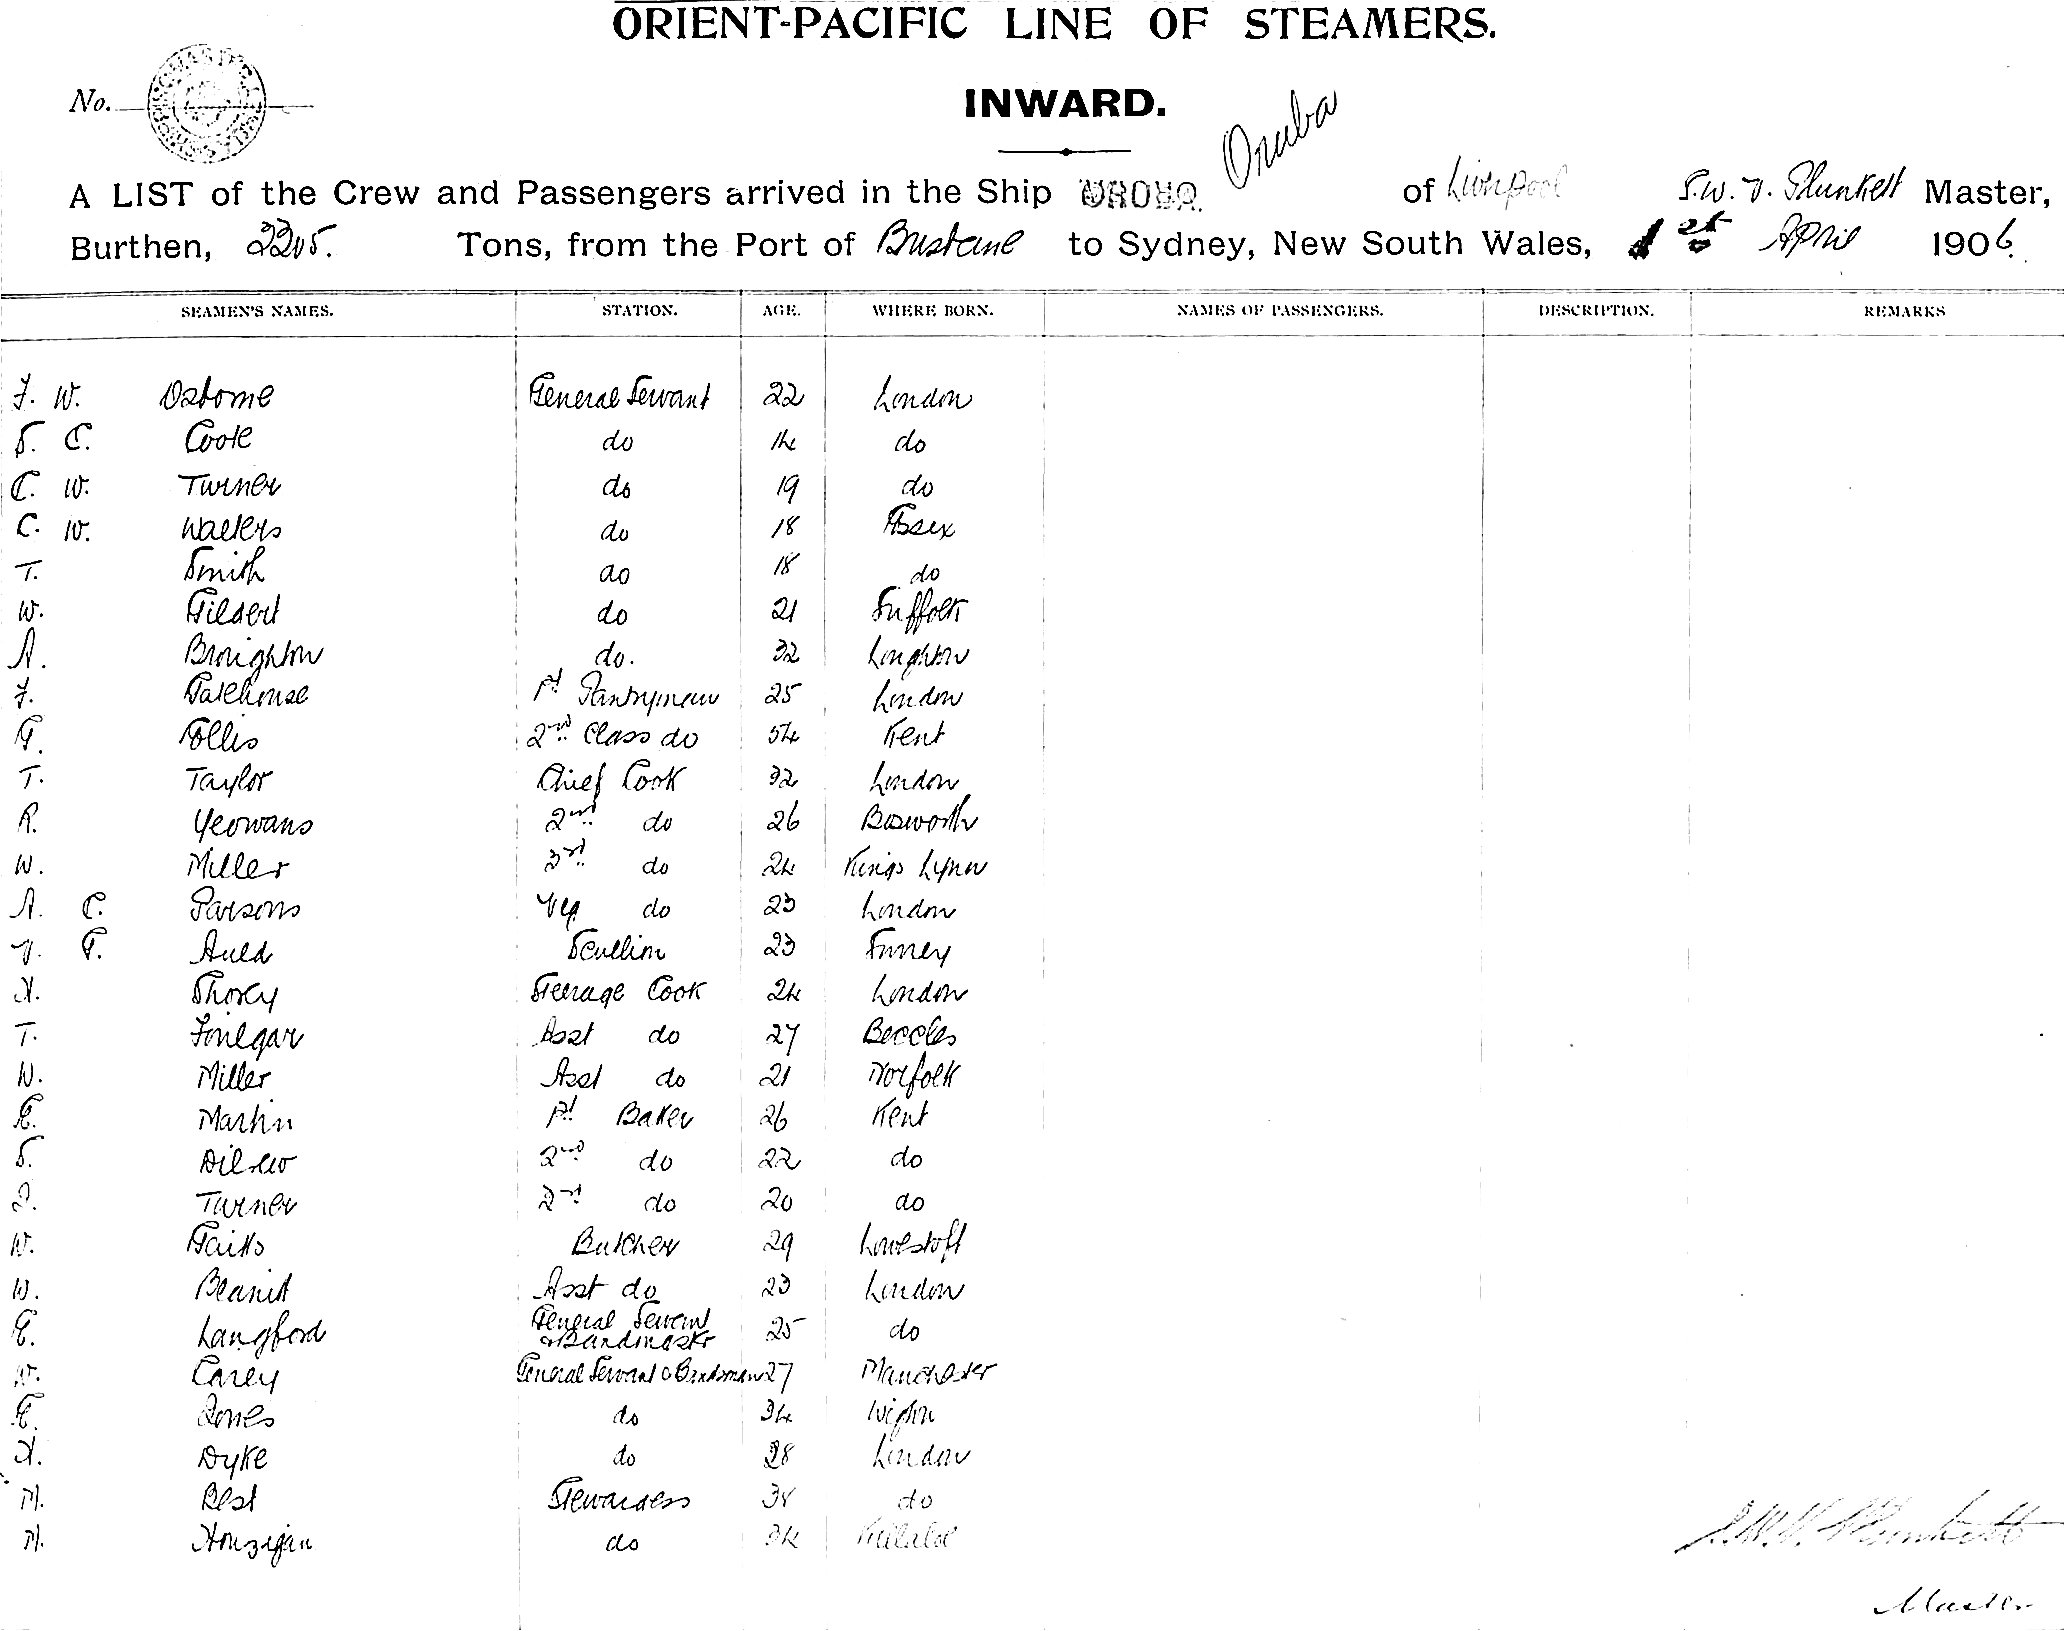 ORIENT-PACIFIC LINE OF STEAMERS.
No.
INWARD.
A LIST of the Crew and Passengers arrived in the Ship Oruba of Liverpool S. W. V. Plunkett Master,
Burthen, 2205. Tons, from the Port of Brisbane to Sydney, New South Wales, 1st April 1906.
SEAMEN'S NAMES. STATION. AGE. WHERE BORN. NAMES OF PASSENGERS. DESCRIPTION. REMARKS
F. W. Osborne General Servant 22 London
S. C. Coote do 14 do
C. W. Turner do 19 do
C. W. Walters do 18 Essex
T. Smith do 18 do
W. Gilbert do 21 Suffolk
A. Broighton do. 32 Loughton
F. Gatehouse 1st Pantryman 25 London
G. Follis 2nd Class do 54 Kent
T. Taylor Chief Cook 32 London
R. Yeowans 2nd do 26 Bosworth
W. Miller 3rd do 24 Kings Lynn
A. C. Parsons Veg do 23 London
V. G. Auld Scullion 23 Surrey
H. Shorey Steerage Cook 24 London
T. Finegar Asst do 27 Beccles
W. Miller Asst do 21 Norfolk
E. Martin 1st Baker 26 Kent
S. 2nd do 22 do
J. Turner 3rd do 20 do
W. Butcher 29 Lowestoft
W. Asst do 23 London
E. Langford General Servant & Bandmaster 25 do
W. Carey General Servant & Bandsman 27 Manchester
E. Jones do 34 Wigan
H. Dyke do 28 London
M. Best Stewardess 38 do
M. Honzigan do 34 Killaloe
S. W. V. Plunkett
Master